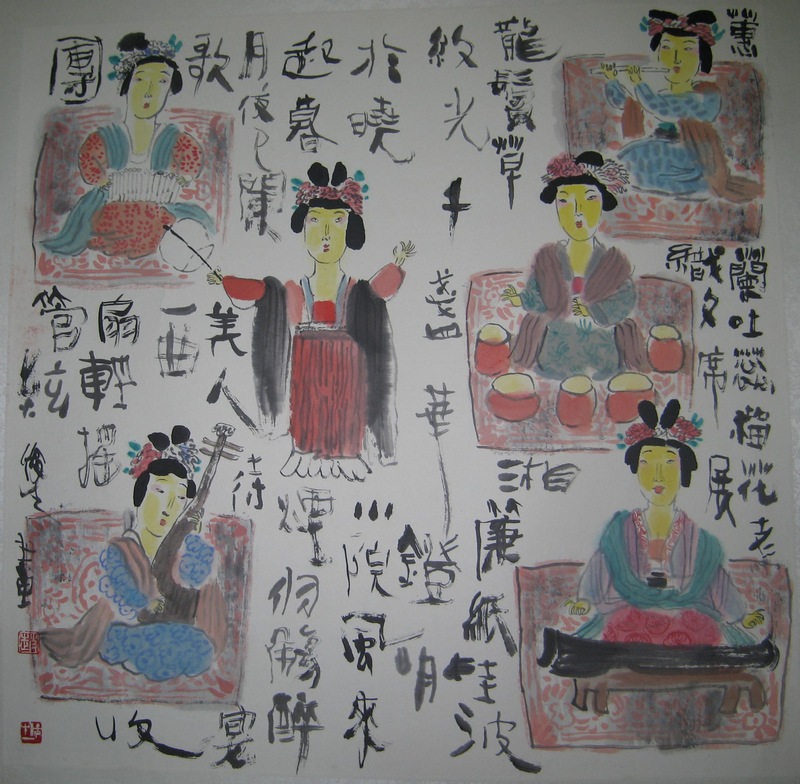 蕙蘭吐蕊梅花老
龍鬚草織文席展
湘簾紙
波
紋光千盞華鐙明
於曉小院風來
起暮煙
觴醉
月夜已闌宴
收
歌待美人一曲
團扇輕搖管絃